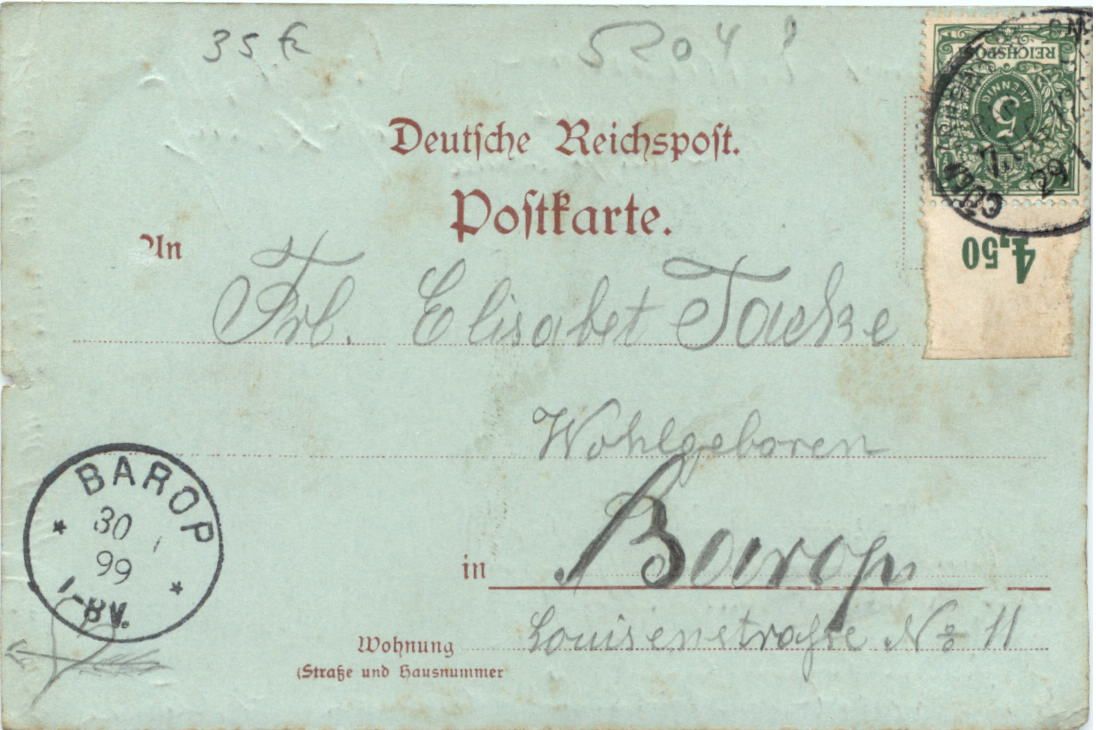 35 5204
Deutsche Reichspost.
Postkarte.
REICHSPOST
5
PFENNIG
29
4,50
An
Frl. Elisabet Tacke
Wohlgeboren
in Barop
Louisenstraße No 11
Wohnung
(Straße und Hausnummer
BAROP
* 30 *
99
1-8V.